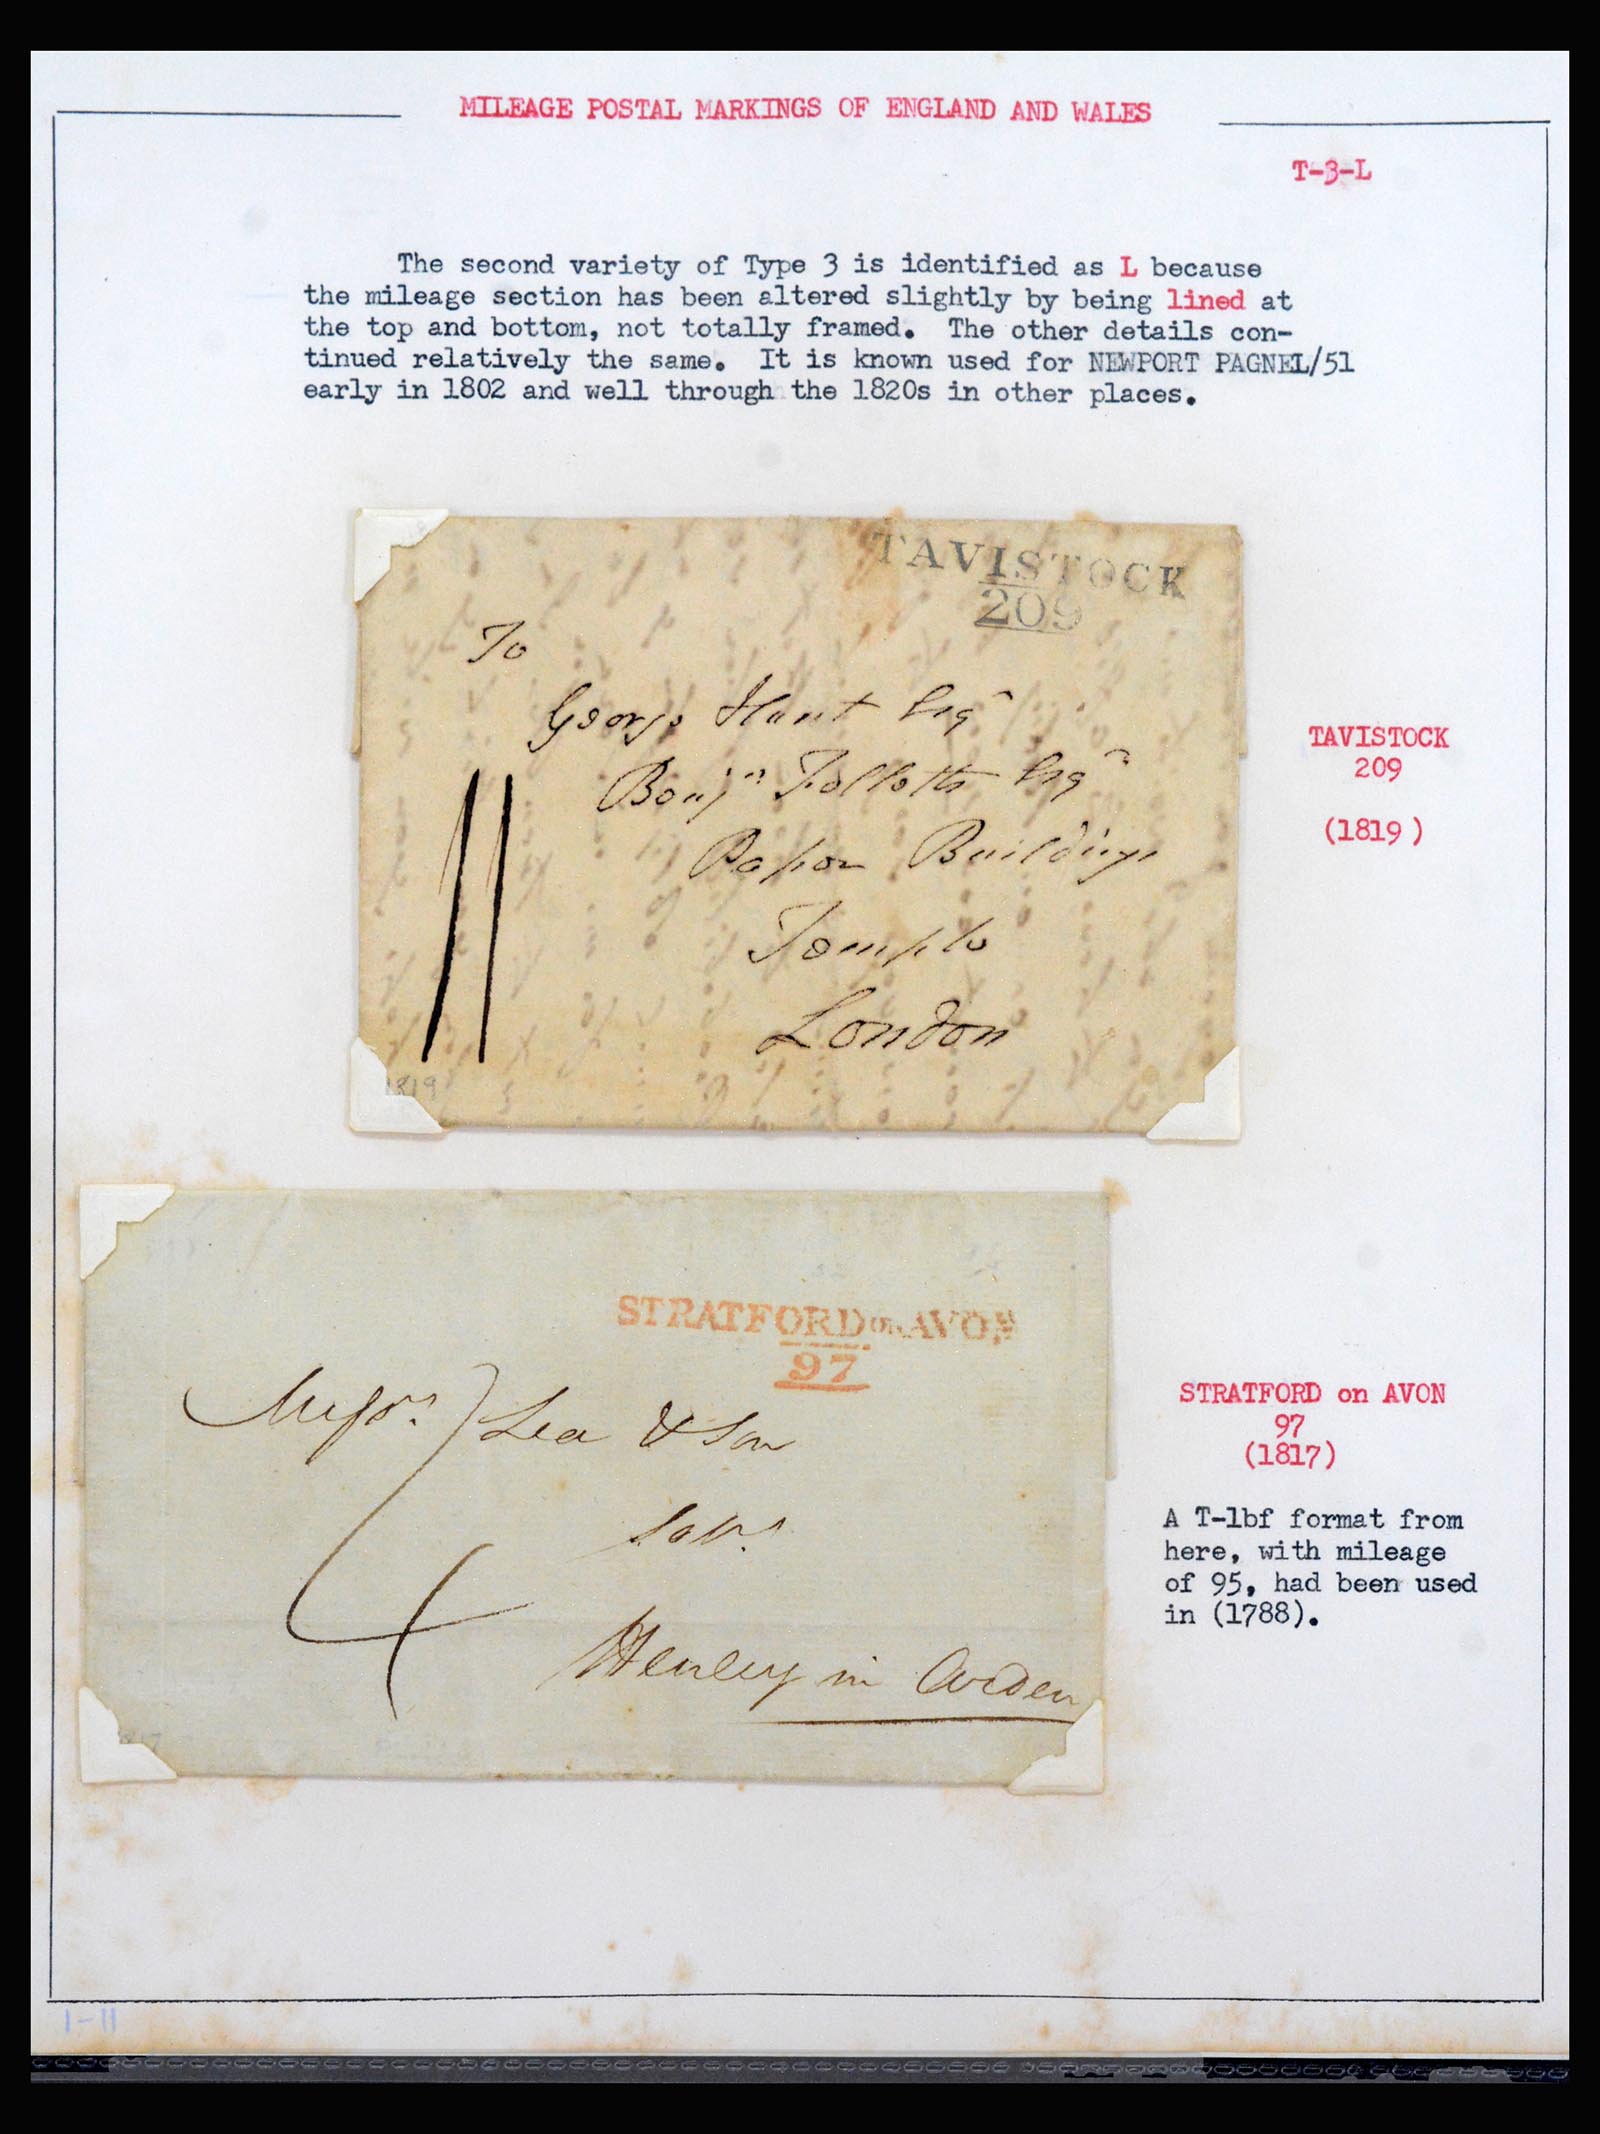 MILEAGE POSTAL MARKINGS OF ENGLAND AND WALES
T-3-L
The second variety of Type 3 is identified as L because
the mileage section has been altered slightly by being lined at
the top and bottom, not totally framed. The other details con-
tinued relatively the same. It is known used for NEWPORT PAGNEL/51
early in 1802 and well through the 1820s in other places.
TAVISTOCK
209
To
George Hunt Esqr
Benjn Follotts Esqr
Paper Buildings
Temple
London
11
1819
TAVISTOCK
209
(1819)
STRATFORD on AVON
97
Messrs Lea & Son
Solrs
Henley in Arden
4
1817
STRATFORD on AVON
97
(1817)
A T-1bf format from
here, with mileage
of 95, had been used
in (1788).
1-11